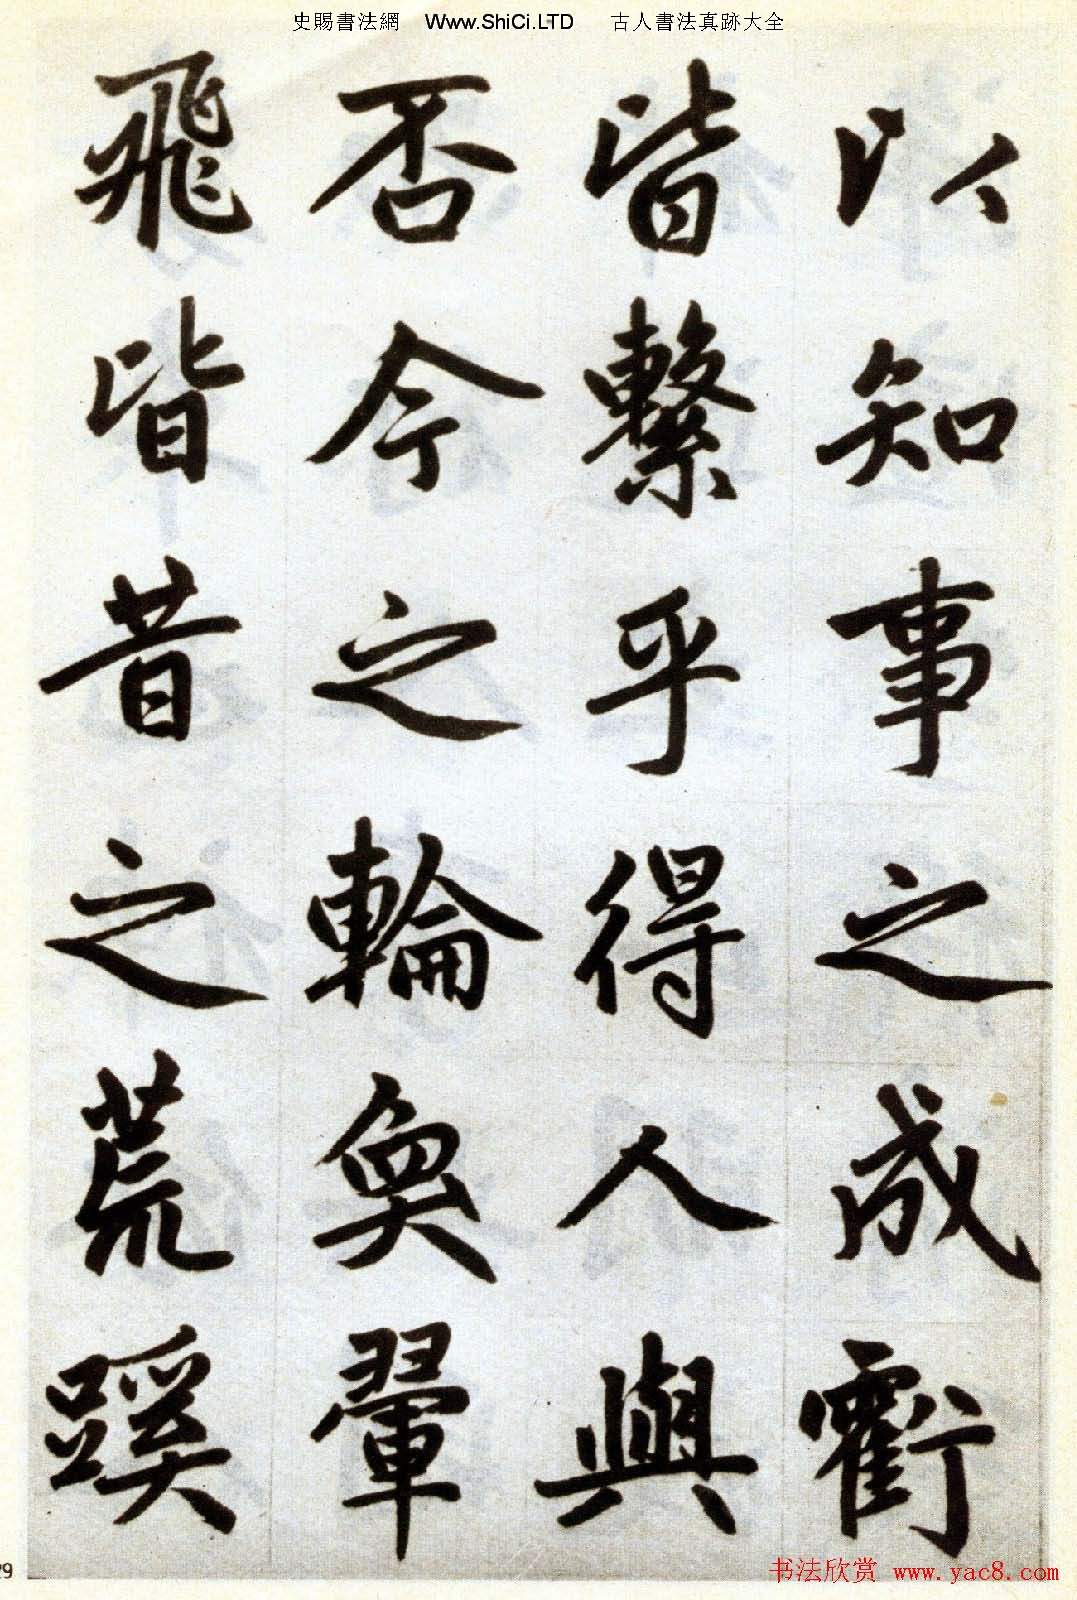 史賜書法網 Www.ShiCi.LTD 古人書法真跡大全
以知事之成虧
皆繫乎得人與
否今之輪奐翬
飛皆昔之荒蹊
29
书法欣赏 www.yac8.com